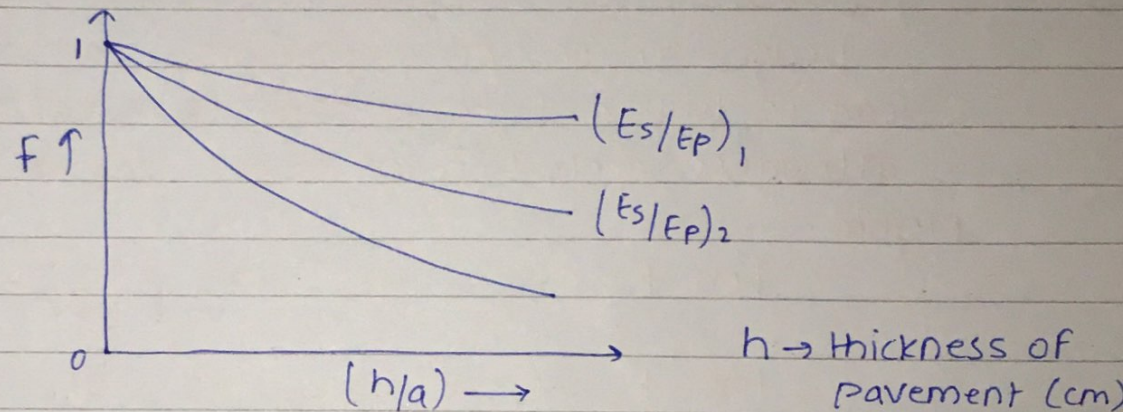 1
F ↑
(Es/Ep)1
(Es/Ep)2
0
(h/a) →
h → thickness of
pavement (cm)